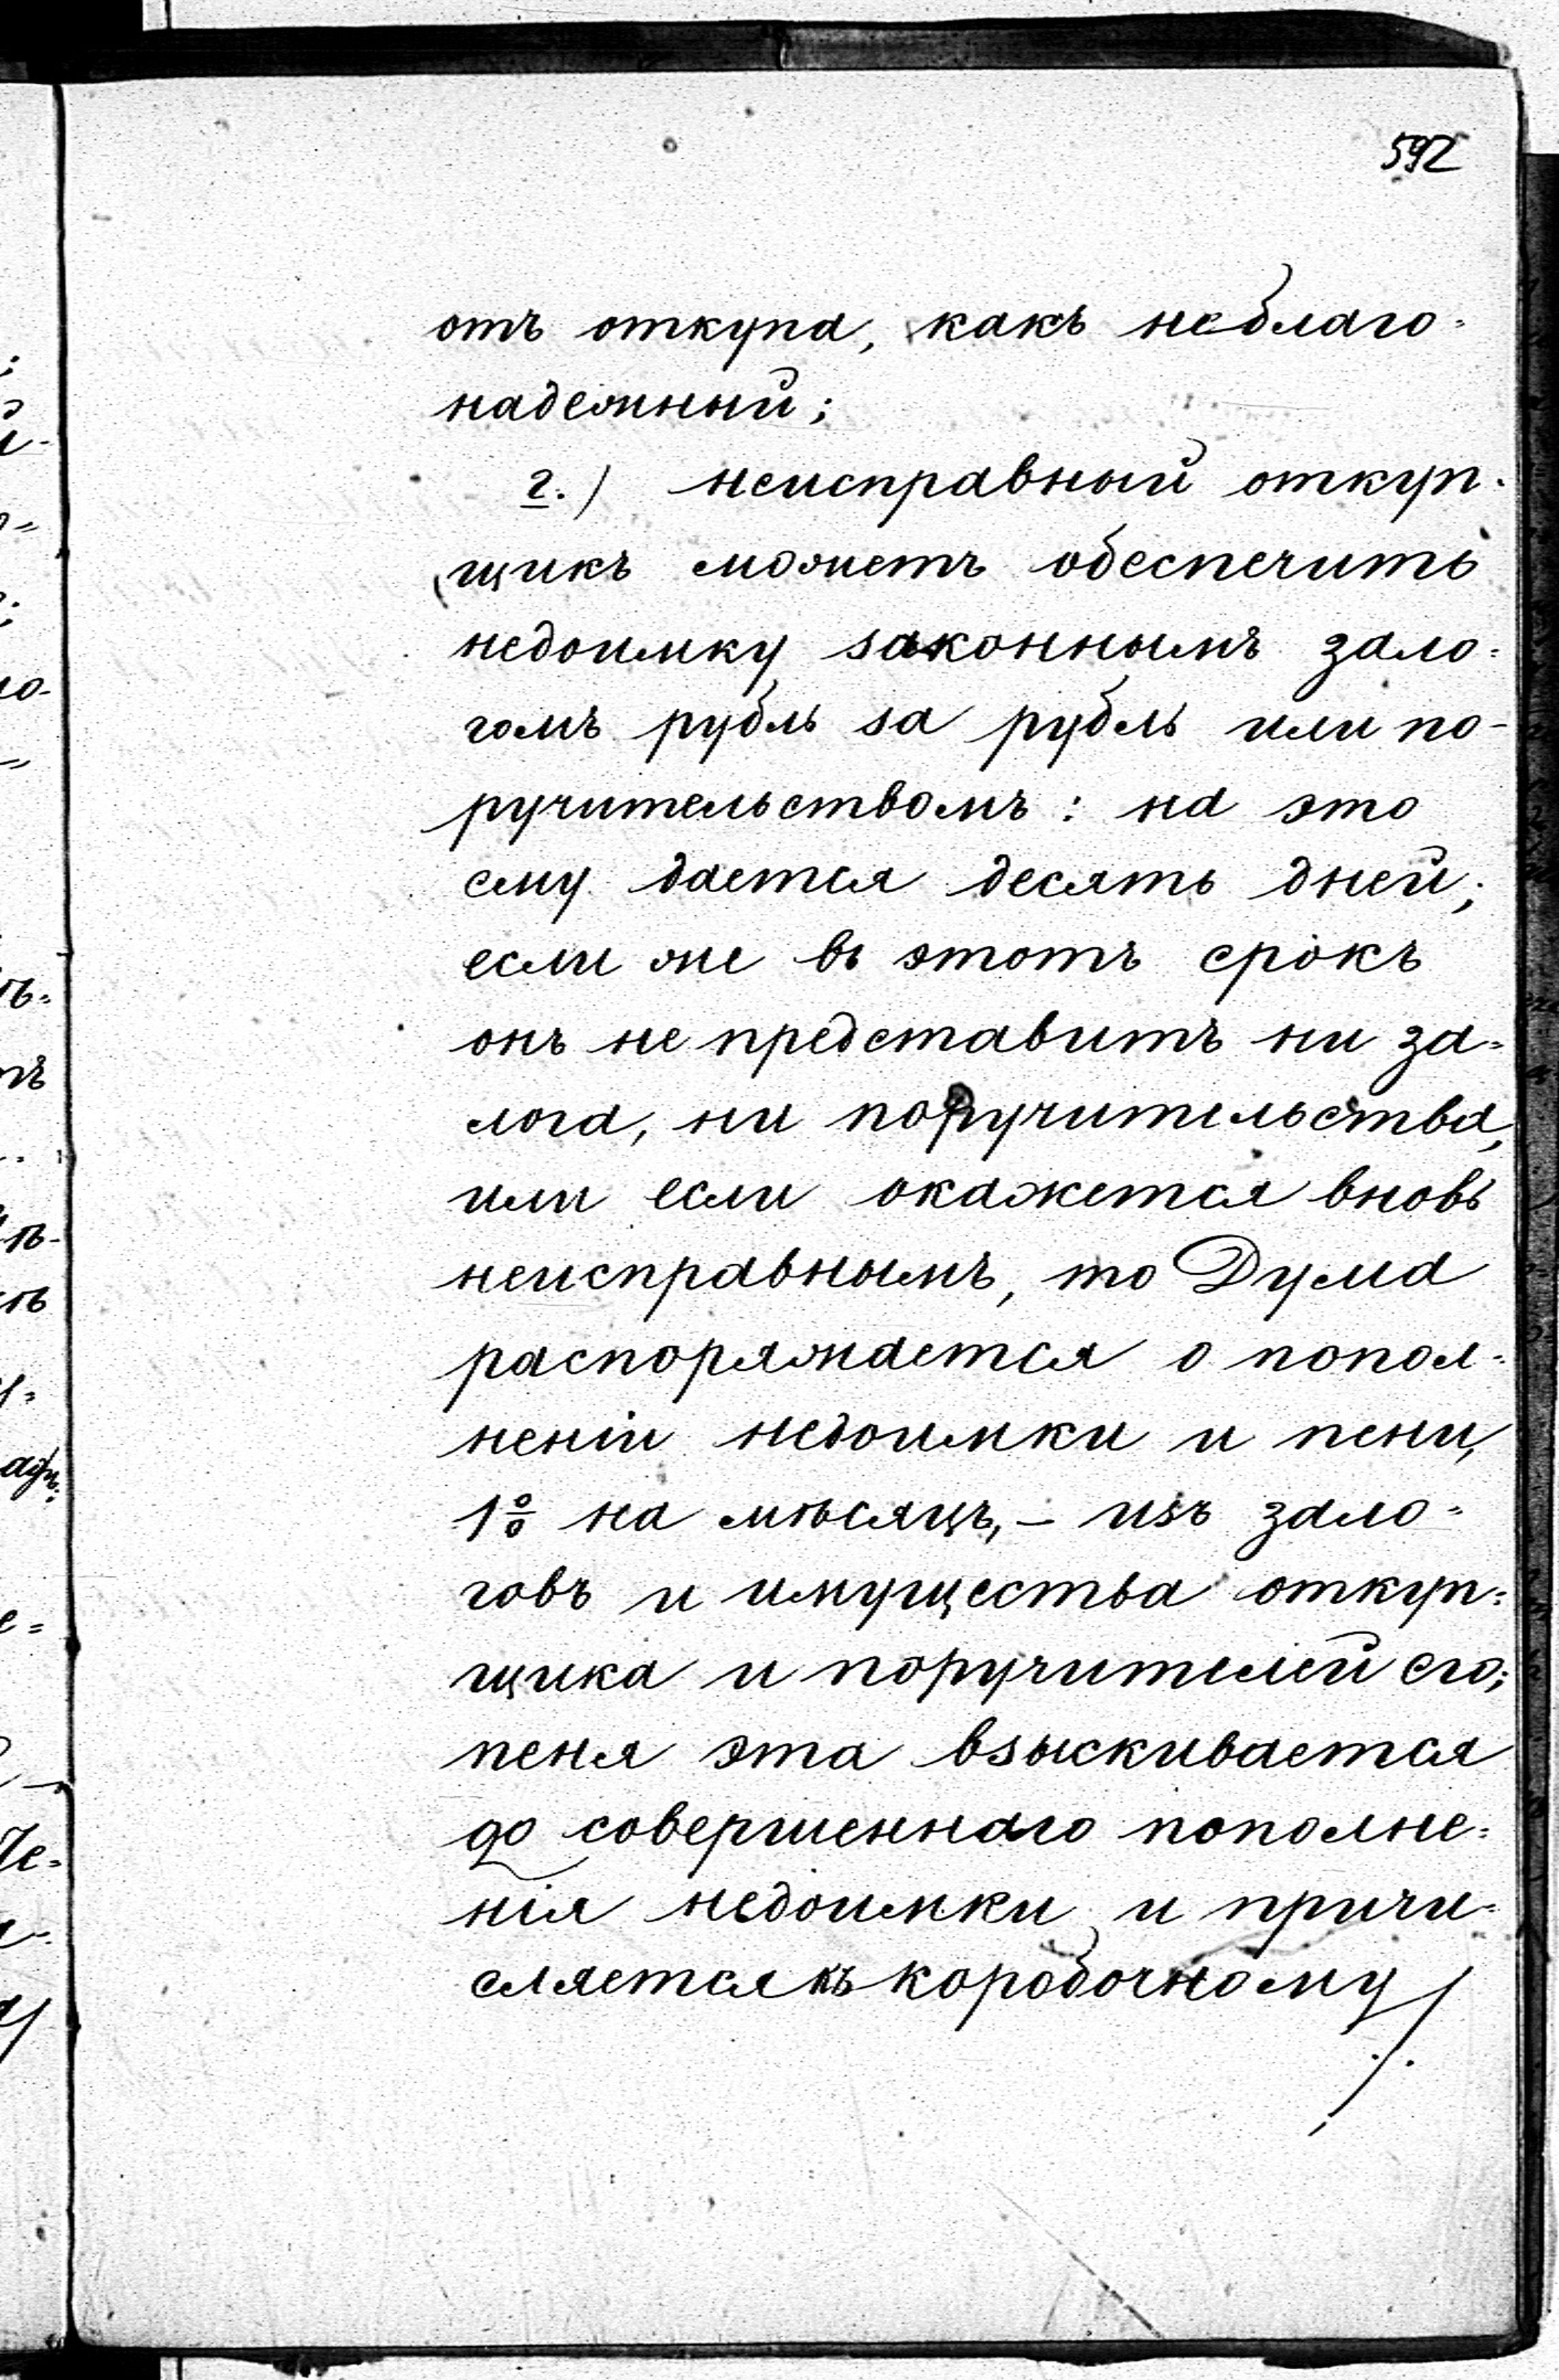 592
отъ откупа, какъ неблаго=
надежный;
2.) неисправный откуп-
щикъ можетъ обеспечить
недоимку законнымъ зало=
гомъ рубль за рубль или по-
ручительствомъ: на это
ему дается десять дней;
если же въ этотъ срокъ
онъ не представитъ ни за=
лога, ни поручительства,
или если окажется вновь
неисправнымъ, то Дума
распоряжается о попол=
неніи недоимки и пени,
1% на мѣсяцъ, – изъ зало=
говъ и имущества откуп=
щика и поручителей его;
пеня эта взыскивается
до совершеннаго пополне=
нія недоимки и причи=
сляется къ коробочному